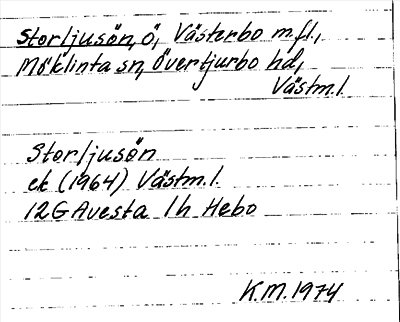 Storljusön, ö, Västerbo m.fl.,
Möklinta sn, Övertjurbo hd,
Västm.l.
Storljusön
ek (1964) Västm.l.
12G Avesta 1h Hebo
K.M. 1974